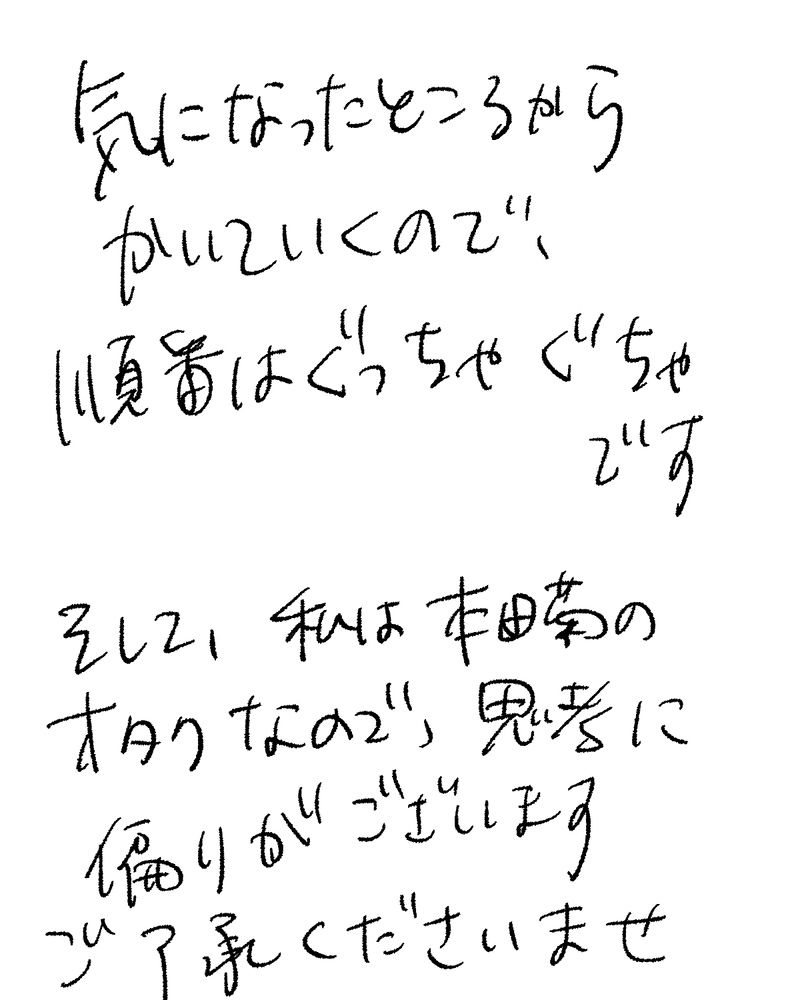 気になったところから
かいていくので、
順番はぐっちゃぐちゃ
です
そして、私は本田菊の
オタクなので、思考に
偏りがございます
ご了承くださいませ